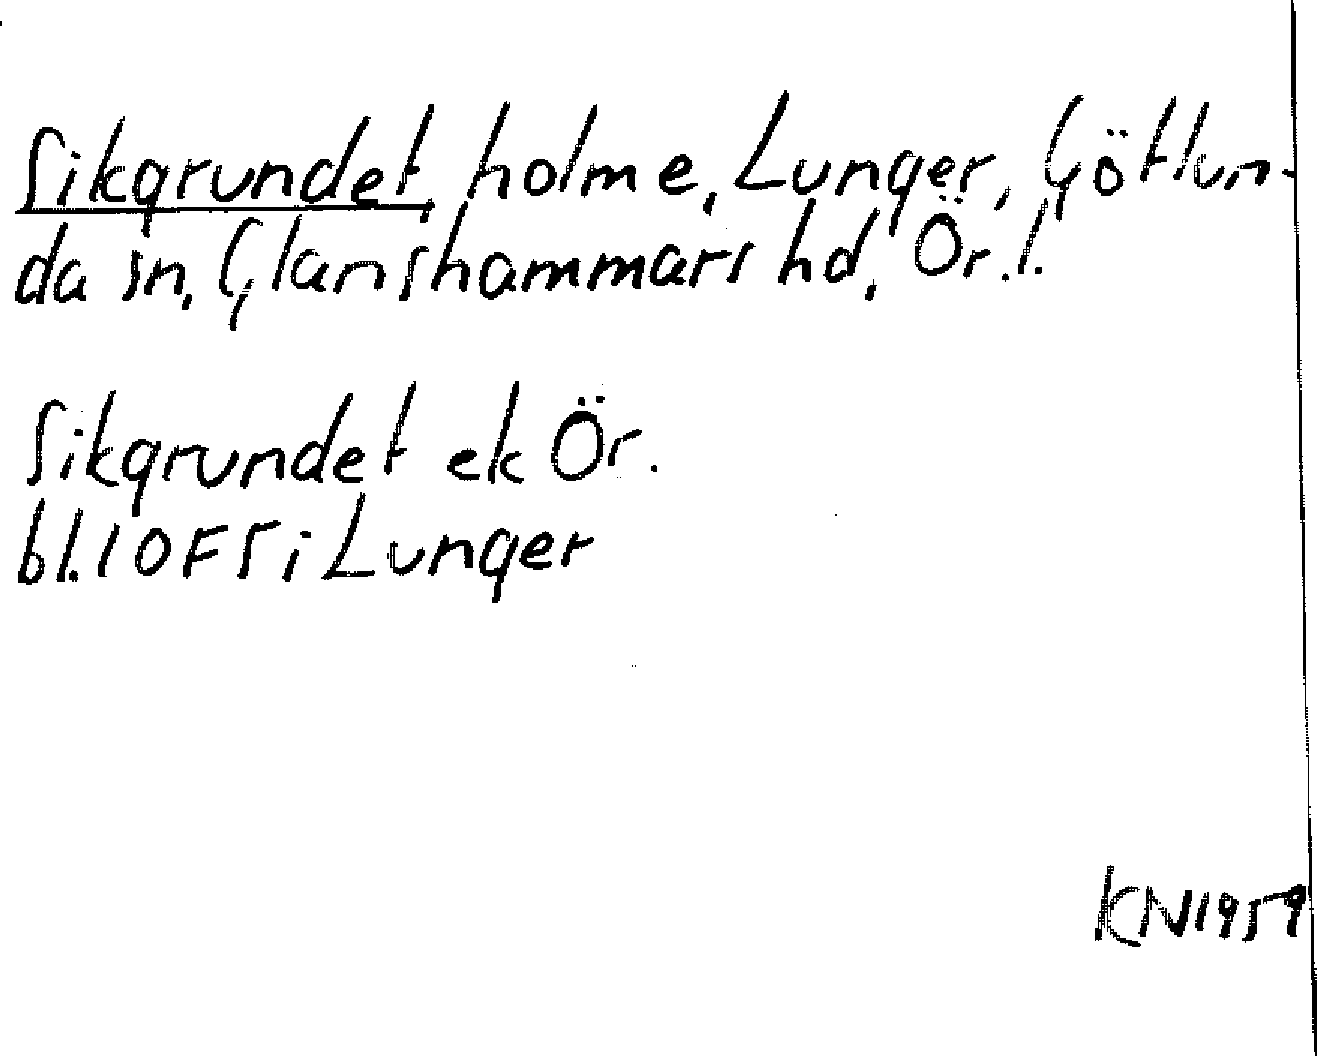 Sikgrundet, holme, Lunger, Götlun-
da sn, Glanshammars hd, Ör. l.
Sikgrundet ek Ör.
bl. 10F5 i Lunger
KN1959